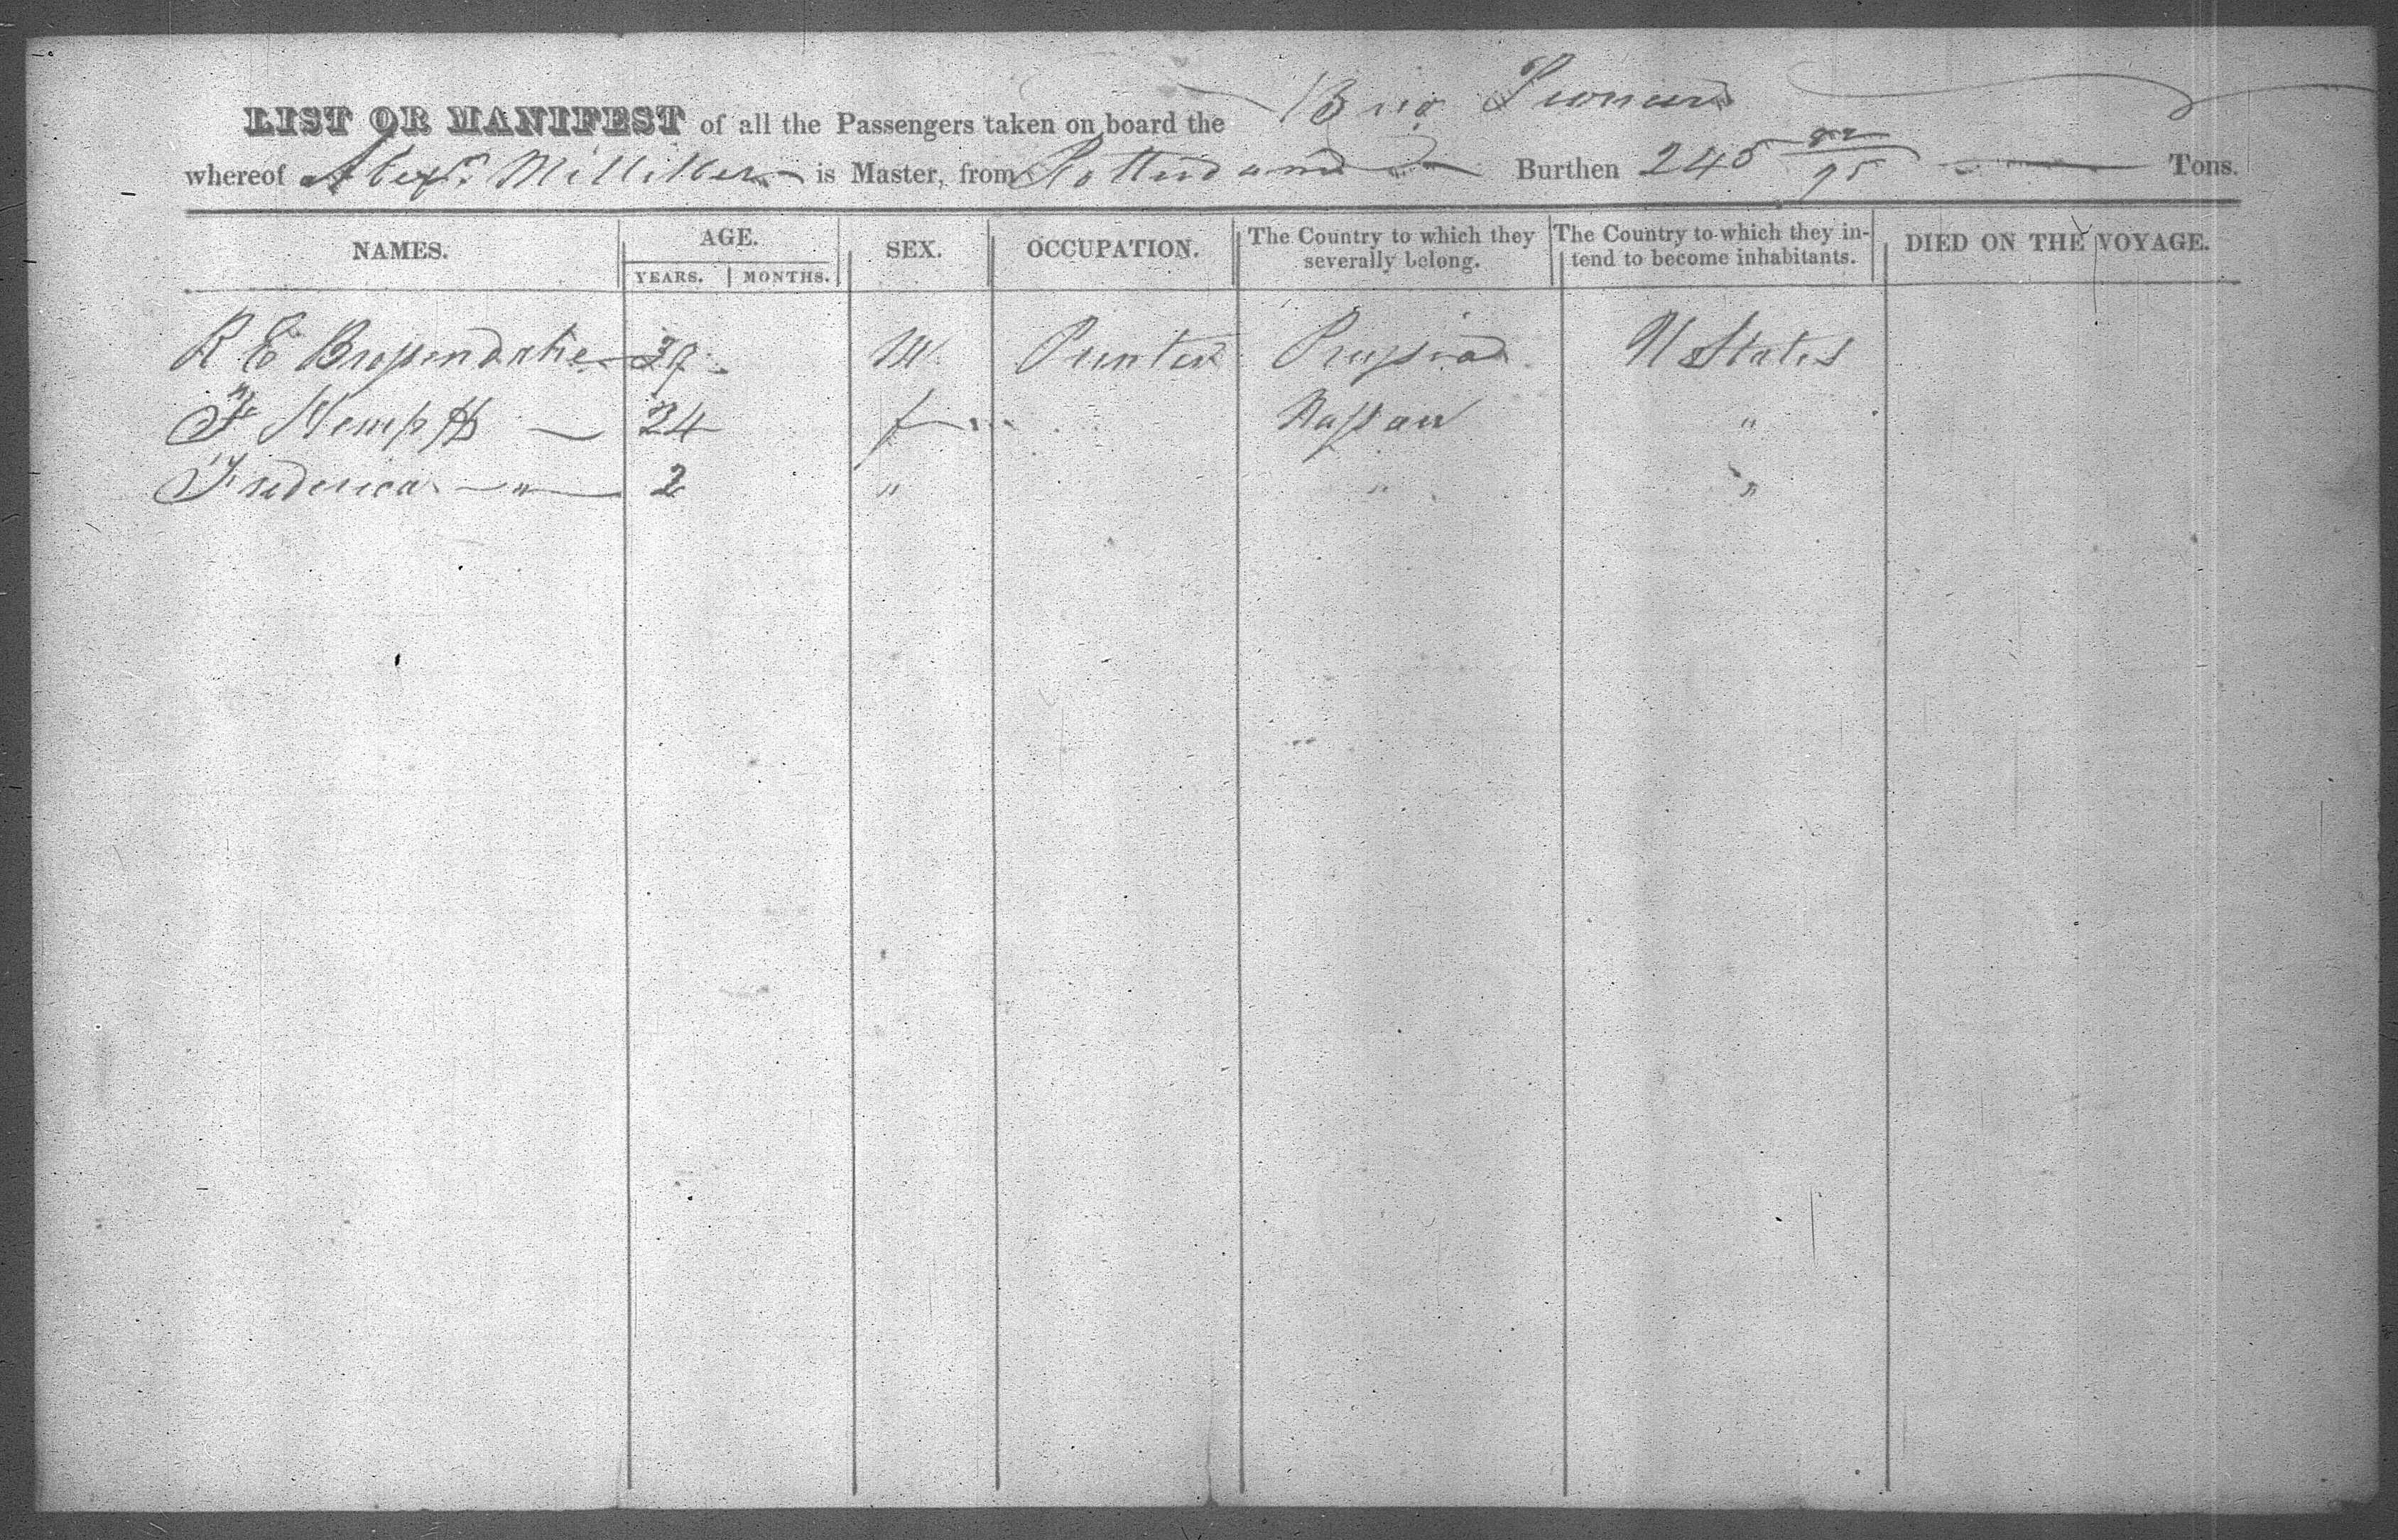 LIST OR MANIFEST of all the Passengers taken on board the Brig Pioneer
whereof Alexr. Milliken is Master, from Rotterdam Burthen 245 92/95 Tons.
NAMES. AGE. SEX. OCCUPATION. The Country to which they severally belong. The Country to which they in-tend to become inhabitants. DIED ON THE VOYAGE.
YEARS. MONTHS.
R E 39 M Printer Prussia U States
F Kempff 24 f Nassau "
Frederica " 2 " " "